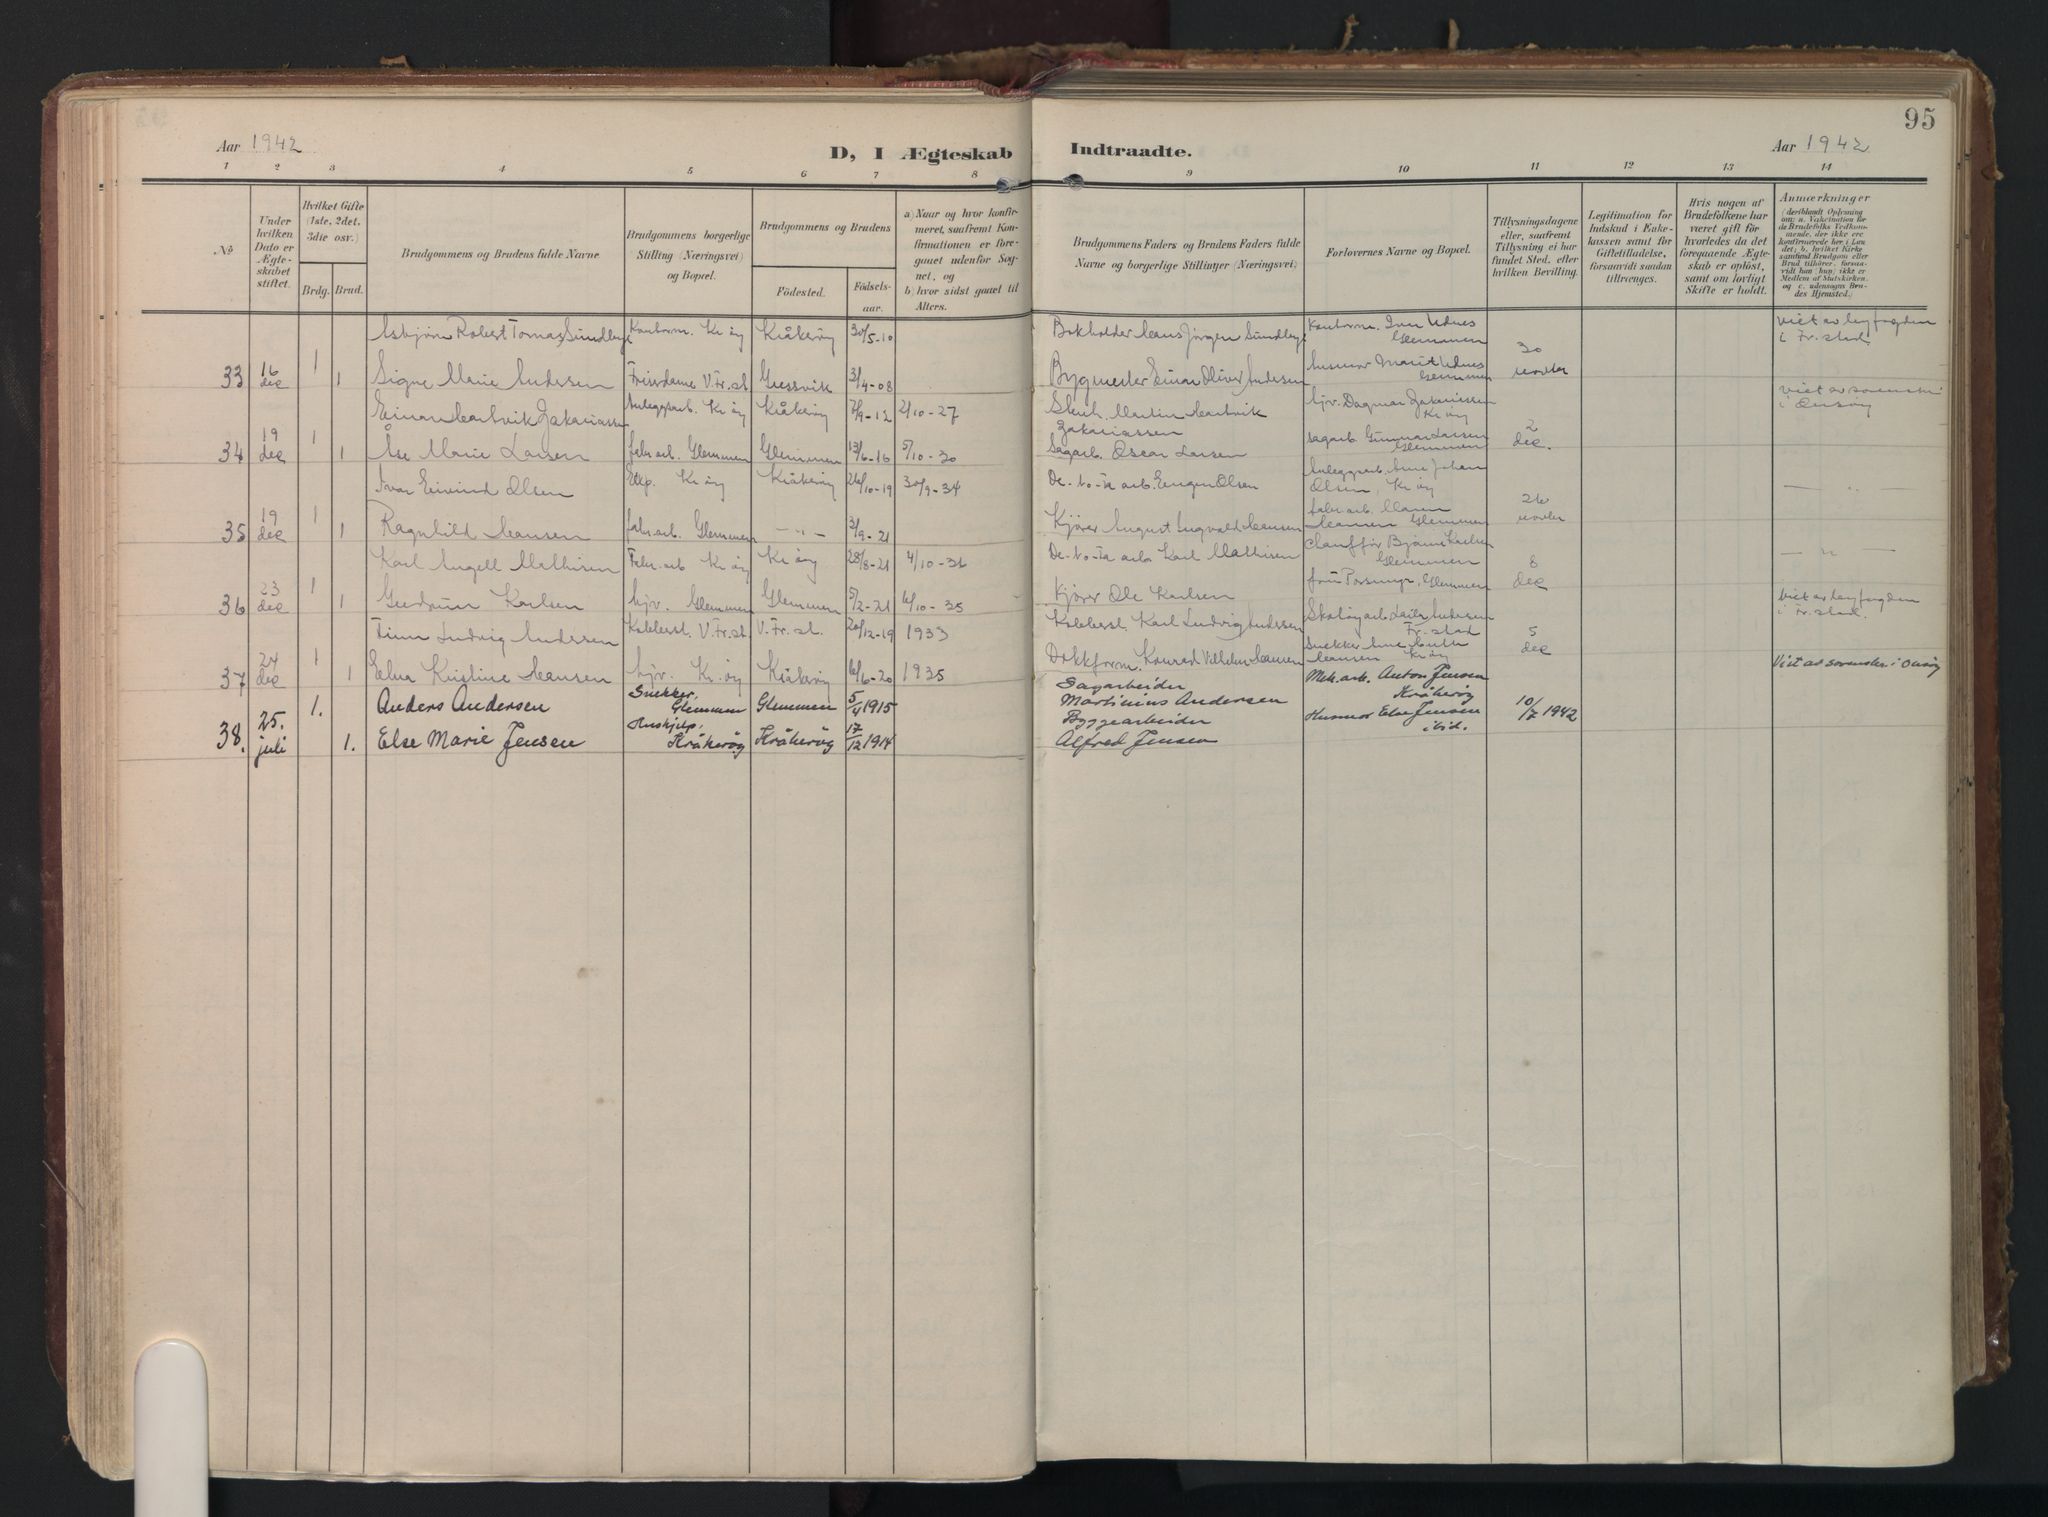 95
Aar 1942
D, I Ægteskab Indtraadte.
Aar 1942
1 2 3 4 5 6 7 8 9 10 11 12 13 14
No
Under hvilken Dato er Ægteskabet stiftet.
Hvilket Gifte (1ste, 2det, 3die osv.)
Brdg. Brud.
Brudgommens og Brudens fulde Navne.
Brudgommens borgerlige Stilling (Næringsvei) og Bopæl.
Brudgommens og Brudens
Fødested. Fødselsaar.
a) Naar og hvor konfirmeret, saafremt Konfirmationen er foregaaet udenfor Sognet, og
b) hvor sidst gaaet til Alters.
Brudgommens Faders og Brudens Faders fulde Navne og borgerlige Stillinger (Næringsvei)
Forlovernes Navne og Bopæl.
Tillysningsdagene eller, saafremt Tillysning ei har fundet Sted, efter hvilken Bevilling.
Legitimation for Indskud i Enkekassen samt for Giftetilladelse, forsaavidt saadan tiltrænges.
Hvis nogen af Brudefolkene har været gift før hvorledes da det foregaaende Ægteskab er opløst, samt om lovligt Skifte er holdt.
Anmærkninger
(deriblandt Oplysning om: a. Vakcination for de Brudefolks Vedkommende, der ikke ere konfirmerede her i Landet; b. hvilket Kirkesamfund Brudgom eller Brud tilhører, forsaavidt han (hun) ikke er Medlem af Statskirken, og c. udensogns Brudes Hjemsted.)
Asbjørn Robert Tomas Sundberg Kontorm. Kr.øy Kråkerøy 30/5-10 Bokholder Hans Jørgen Sundberg Kontorm. Glemmen viet av byfogden i Fr.stad
33 16 dec 1 1 Signe Marie Andersen V.Fr.st. Gressvik 3/4-08 Bygmester Einar Oliver Andersen Husmor Marit Glemmen 30 novbr
Einar Hartvik Zakariassen Anleggsarb. Kr.øy Kråkerøy 7/9-12 2/10-27 Martin Hartvik Zakariassen hjv. Dagmar Zakariassen Kr.øy viet av sorenskr. i Onsøy
34 19 dec 1 1 Åse Marie Larsen fabr.arb. Glemmen Glemmen 13/6-16 5/10-30 Sagarb. Oscar Larsen sagarb. Gunnar Larsen Glemmen 2 dec.
Ivar Eivind Olsen Kr.øy Kråkerøy 26/10-19 30/9-34 De-No-Fa arb. Eugen Olsen Anleggsarb. Arne Johan Olsen, Kr.øy — „ —
35 19 dec 1 1 Ragnhild Hansen fabr.arb. Glemmen — „ — 3/9-21 Kjører August Ingvald Hansen fabr.arb. Hansen Glemmen 26 novbr
Karl Angell Mathisen Fabr.arb Kr.øy Kr.øy 28/8-21 4/10-36 De-No-Fa arb Karl Mathisen Chauffør Bjarne Karlsen Glemmen — „ —
36 23 dec 1 1 Gudrun Karlsen hjv. Glemmen Glemmen 5/2-21 6/10-35 Kjører Ole Karlsen fru Glemmen 8 dec viet av byfogden i Fr.stad.
Finn Ludvig Andersen Kobberst. V.Fr.st. V.Fr.st. 20/12-19 1933 Kobberst. Karl Ludvig Andersen Skotøyarb. Andersen Fr.stad
37 24 dec 1 1 Elna Kristine Hansen hjv. Kr.øy Kråkerøy 6/6-20 1935 Dokkform. Konrad Vilhelm Hansen Snekker Hansen Kr.øy 5 dec Viet av sorenskr. i Onsøy
Anders Andersen Snekker, Glemmen Glemmen 5/4 1915 Sagarbeider Martinius Andersen Mek.arb. Anton Jensen Kråkerøy
38. 25. juli 1. 1. Else Marie Jensen Hushjelp. Kråkerøy Kråkerøy 17/12 1914 Byggearbeider Alfred Jensen Husmor Else Jensen ibid. 10/7 1942